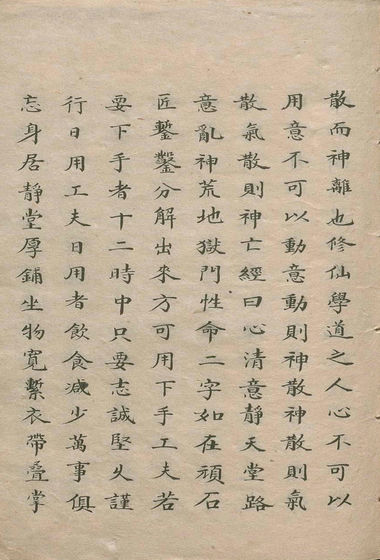 散而神離也修仙學道之人心不可以
用意不可以動意動則神散神散則氣
散氣散則神亡經曰心清意靜天堂路
意亂神荒地獄門性命二字如在頑石
匠鏨鑿分解出來方可用下手工夫若
要下手者十二時中只要志誠堅久謹
行日用工夫日用者飲食減少萬事俱
忘身居靜堂厚鋪坐物寬繫衣帶疊掌